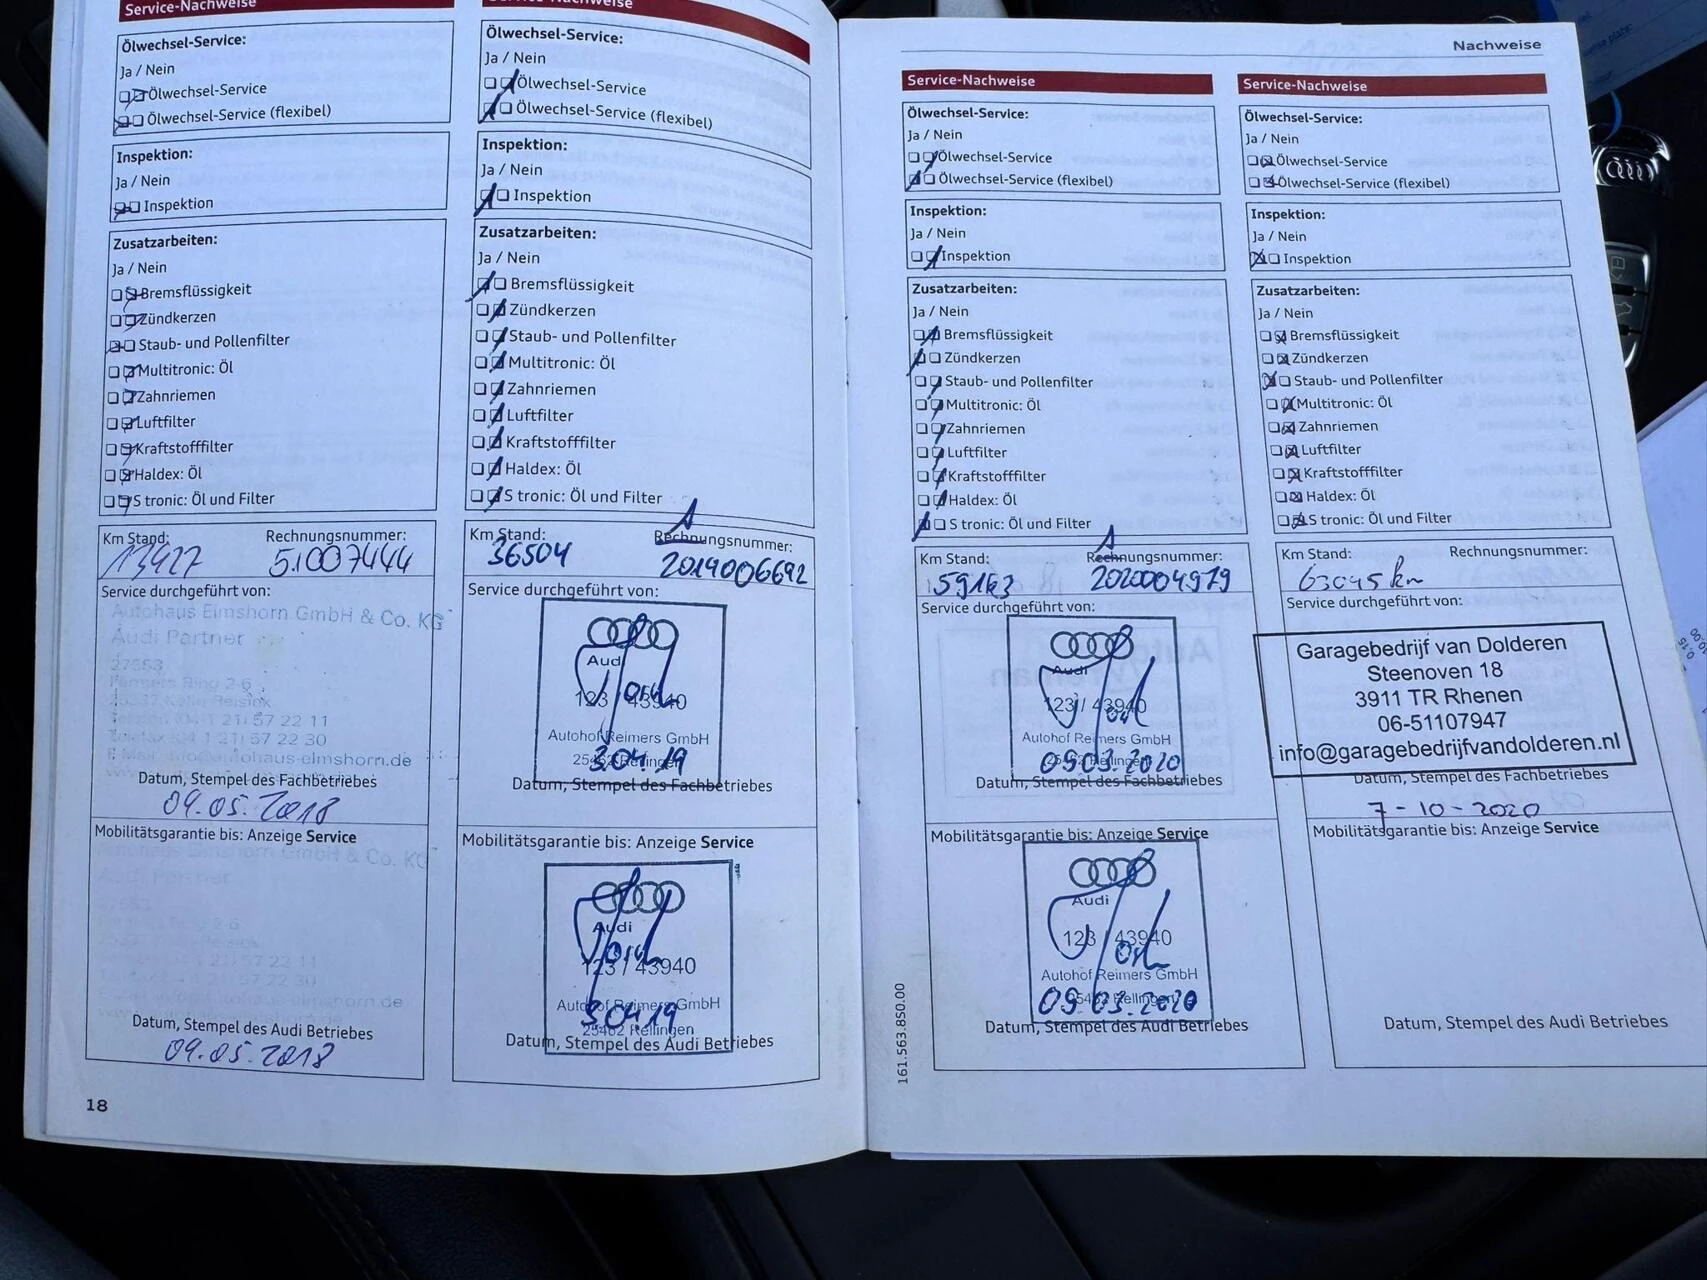 Service-Nachweise
Ölwechsel-Service:
Ja / Nein
Ölwechsel-Service
Ölwechsel-Service (flexibel)
Inspektion:
Ja / Nein
Inspektion
Zusatzarbeiten:
Ja / Nein
Bremsflüssigkeit
Zündkerzen
Staub- und Pollenfilter
Multitronic: Öl
Zahnriemen
Luftfilter
Kraftstofffilter
Haldex: Öl
S tronic: Öl und Filter
Km Stand: Rechnungsnummer:
13427 51007444
Service durchgeführt von:
Autohaus Elmshorn GmbH & Co. KG
Audi Partner
Datum, Stempel des Fachbetriebes
09.05.2018
Mobilitätsgarantie bis: Anzeige Service
Autohaus Elmshorn GmbH & Co. KG
Audi Partner
Datum, Stempel des Audi Betriebes
09.05.2018
18
Service-Nachweise
Ölwechsel-Service:
Ja / Nein
Ölwechsel-Service
Ölwechsel-Service (flexibel)
Inspektion:
Ja / Nein
Inspektion
Zusatzarbeiten:
Ja / Nein
Bremsflüssigkeit
Zündkerzen
Staub- und Pollenfilter
Multitronic: Öl
Zahnriemen
Luftfilter
Kraftstofffilter
Haldex: Öl
S tronic: Öl und Filter
Km Stand: Rechnungsnummer:
36504 2019006692
Service durchgeführt von:
Audi
123 / 43940
Autohof Reimers GmbH
25462 Rellingen
3.04.19
Datum, Stempel des Fachbetriebes
Mobilitätsgarantie bis: Anzeige Service
Audi
123 / 43940
Autohof Reimers GmbH
3.04.19
25462 Rellingen
Datum, Stempel des Audi Betriebes
Nachweise
Service-Nachweise
Ölwechsel-Service:
Ja / Nein
Ölwechsel-Service
Ölwechsel-Service (flexibel)
Inspektion:
Ja / Nein
Inspektion
Zusatzarbeiten:
Ja / Nein
Bremsflüssigkeit
Zündkerzen
Staub- und Pollenfilter
Multitronic: Öl
Zahnriemen
Luftfilter
Kraftstofffilter
Haldex: Öl
S tronic: Öl und Filter
Km Stand: Rechnungsnummer:
59163 2020004979
Service durchgeführt von:
Audi
123 / 43940
Autohof Reimers GmbH
25462 Rellingen
09.03.2020
Datum, Stempel des Fachbetriebes
Mobilitätsgarantie bis: Anzeige Service
Audi
123 / 43940
Autohof Reimers GmbH
25462 Rellingen
09.03.2020
Datum, Stempel des Audi Betriebes
161.563.850.00
Service-Nachweise
Ölwechsel-Service:
Ja / Nein
Ölwechsel-Service
Ölwechsel-Service (flexibel)
Inspektion:
Ja / Nein
Inspektion
Zusatzarbeiten:
Ja / Nein
Bremsflüssigkeit
Zündkerzen
Staub- und Pollenfilter
Multitronic: Öl
Zahnriemen
Luftfilter
Kraftstofffilter
Haldex: Öl
S tronic: Öl und Filter
Km Stand: Rechnungsnummer:
63045 km
Service durchgeführt von:
Garagebedrijf van Dolderen
Steenoven 18
3911 TR Rhenen
06-51107947
info@garagebedrijfvandolderen.nl
Datum, Stempel des Fachbetriebes
7-10-2020
Mobilitätsgarantie bis: Anzeige Service
Datum, Stempel des Audi Betriebes